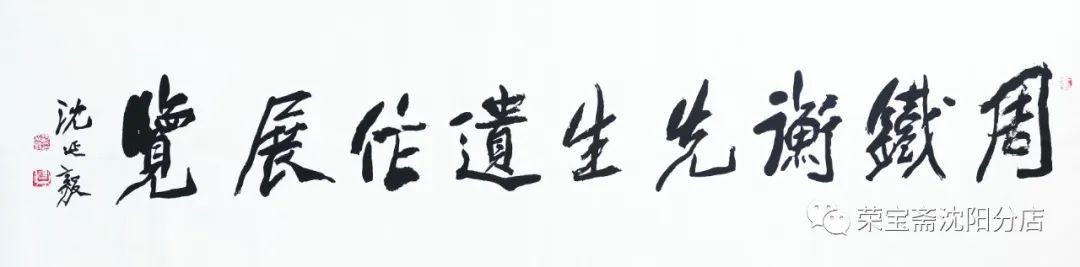 周鐵衡先生遺作展覽
沈延毅
荣宝斋沈阳分店